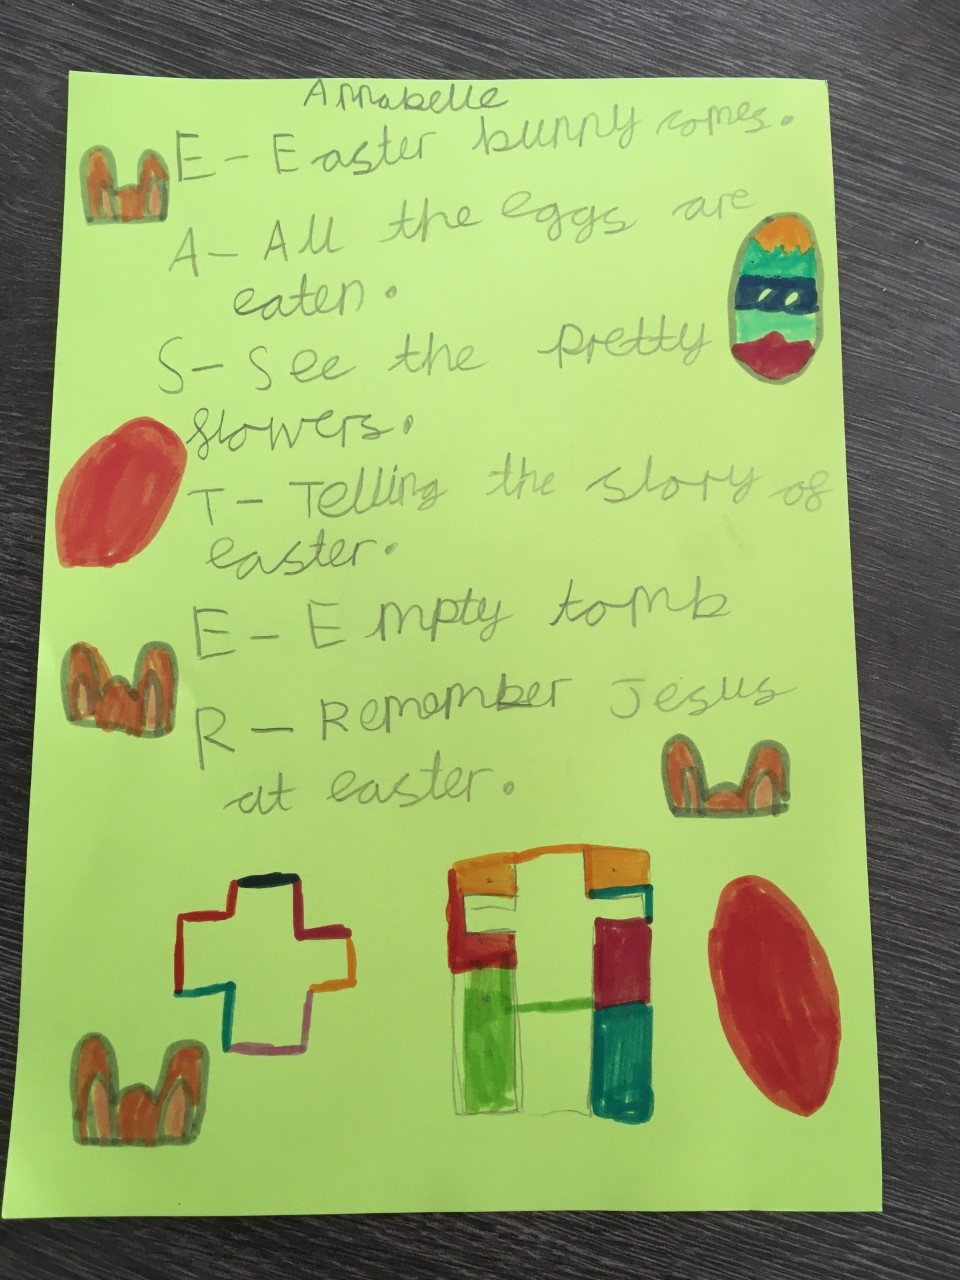 Annabelle
E - Easter bunny comes.
A - All the eggs are
eaten.
S - See the pretty
flowers.
T - Telling the story of
easter.
E - Empty tomb
R - Remember Jesus
at easter.